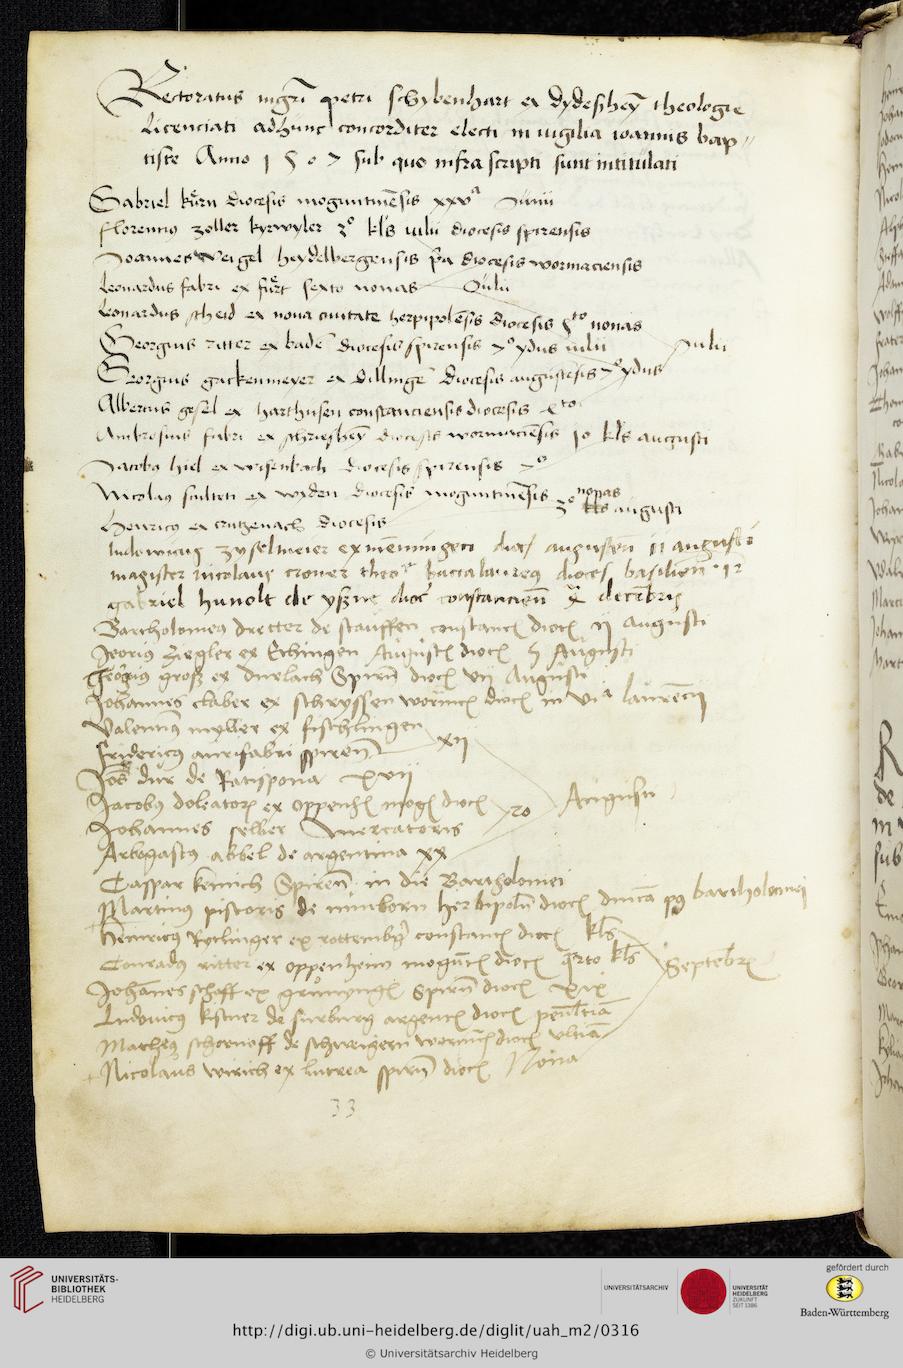 Rectoratus mgri petri schybenhart ex dydeßheym theologie
licenciati adhunc concorditer electi in vigilia ioannis bap
tiste Anno 1507 sub quo infra scripti sunt intitulati
Gabriel kürn diocesis moguntinensis xxv Junii
Florencius zoller kyrwyler 3º kls iulii diocesis spirensis
Joannes Weigel heydelbergensis pa diocesis wormaciensis
Leonardus fabri ex fürt sexto nonas Julii
Leonardus scheid ex nova civitate herpipolensis diocesis 5to nonas
Georgius ritter ex baden diocesis spirensis 7º ydus iulii Julii
Georgius guckenmeyer ex dillingen diocesis augustensis ydus
Albertus gesel ex harthusen constanciensis diocesis
Ambrosius fabri ex schriesheym diocesis wormaciensis 10 kls augusti
Jacobus hiel ex wisenbach diocesis spirensis 7º
Nicolaus sculteti ex wyden diocesis moguntinensis 3º nonas kls augusti
Henricus ex crutzenach diocesis
ludowicus zyselmeier ex menningen dioc augusten 11 augusti
magister nicolaus croner theo baccalaureus dioces basilien 12
gabriel hunolt de yßne dioc constancien decembris
Bartholomeus dretter de stauffen constancien dioc ij augusti
Jeorius ziegler ex Ethingen Augusten dioc 5 Augusti
Georius groß ex durlach Spirn dioc vij Augusti
Johannes claber ex schryssen wormacen dioc in via laurencij
Valentinus myller ex fischlingen
Fridericus aurifabri spiren xij
Jois dür de Ratispona xvij
Jacobus doleatoris ex oppenheim mog dioc
Johannes selber mercatoris 20 Augusti
Arbogastus abbel de argentina xx
Caspar kemich Spiren in die Bartholomei
Martinus pistoris de nunborn herbipoln dioc dnica post bartholomei
Heinricus Rotlinger ex rottemburg constancien dioc kls
Conradus ritter ex oppenheim moguncen dioc qrto kls Septembris
Johannes schoff ex gruonyngen Spirn dioc xix
Ludovicus kistner de surburg argenten dioc penultima
Matheus schornoff de schweigern wormacen dioc ultima
Nicolaus wirich ex lutrea spirn dioc Nona
33
UNIVERSITÄTS-
BIBLIOTHEK
HEIDELBERG
UNIVERSITÄTSARCHIV
UNIVERSITÄT
HEIDELBERG
ZUKUNFT
SEIT 1386
gefördert durch
Baden-Württemberg
http://digi.ub.uni-heidelberg.de/diglit/uah_m2/0316
© Universitätsarchiv Heidelberg